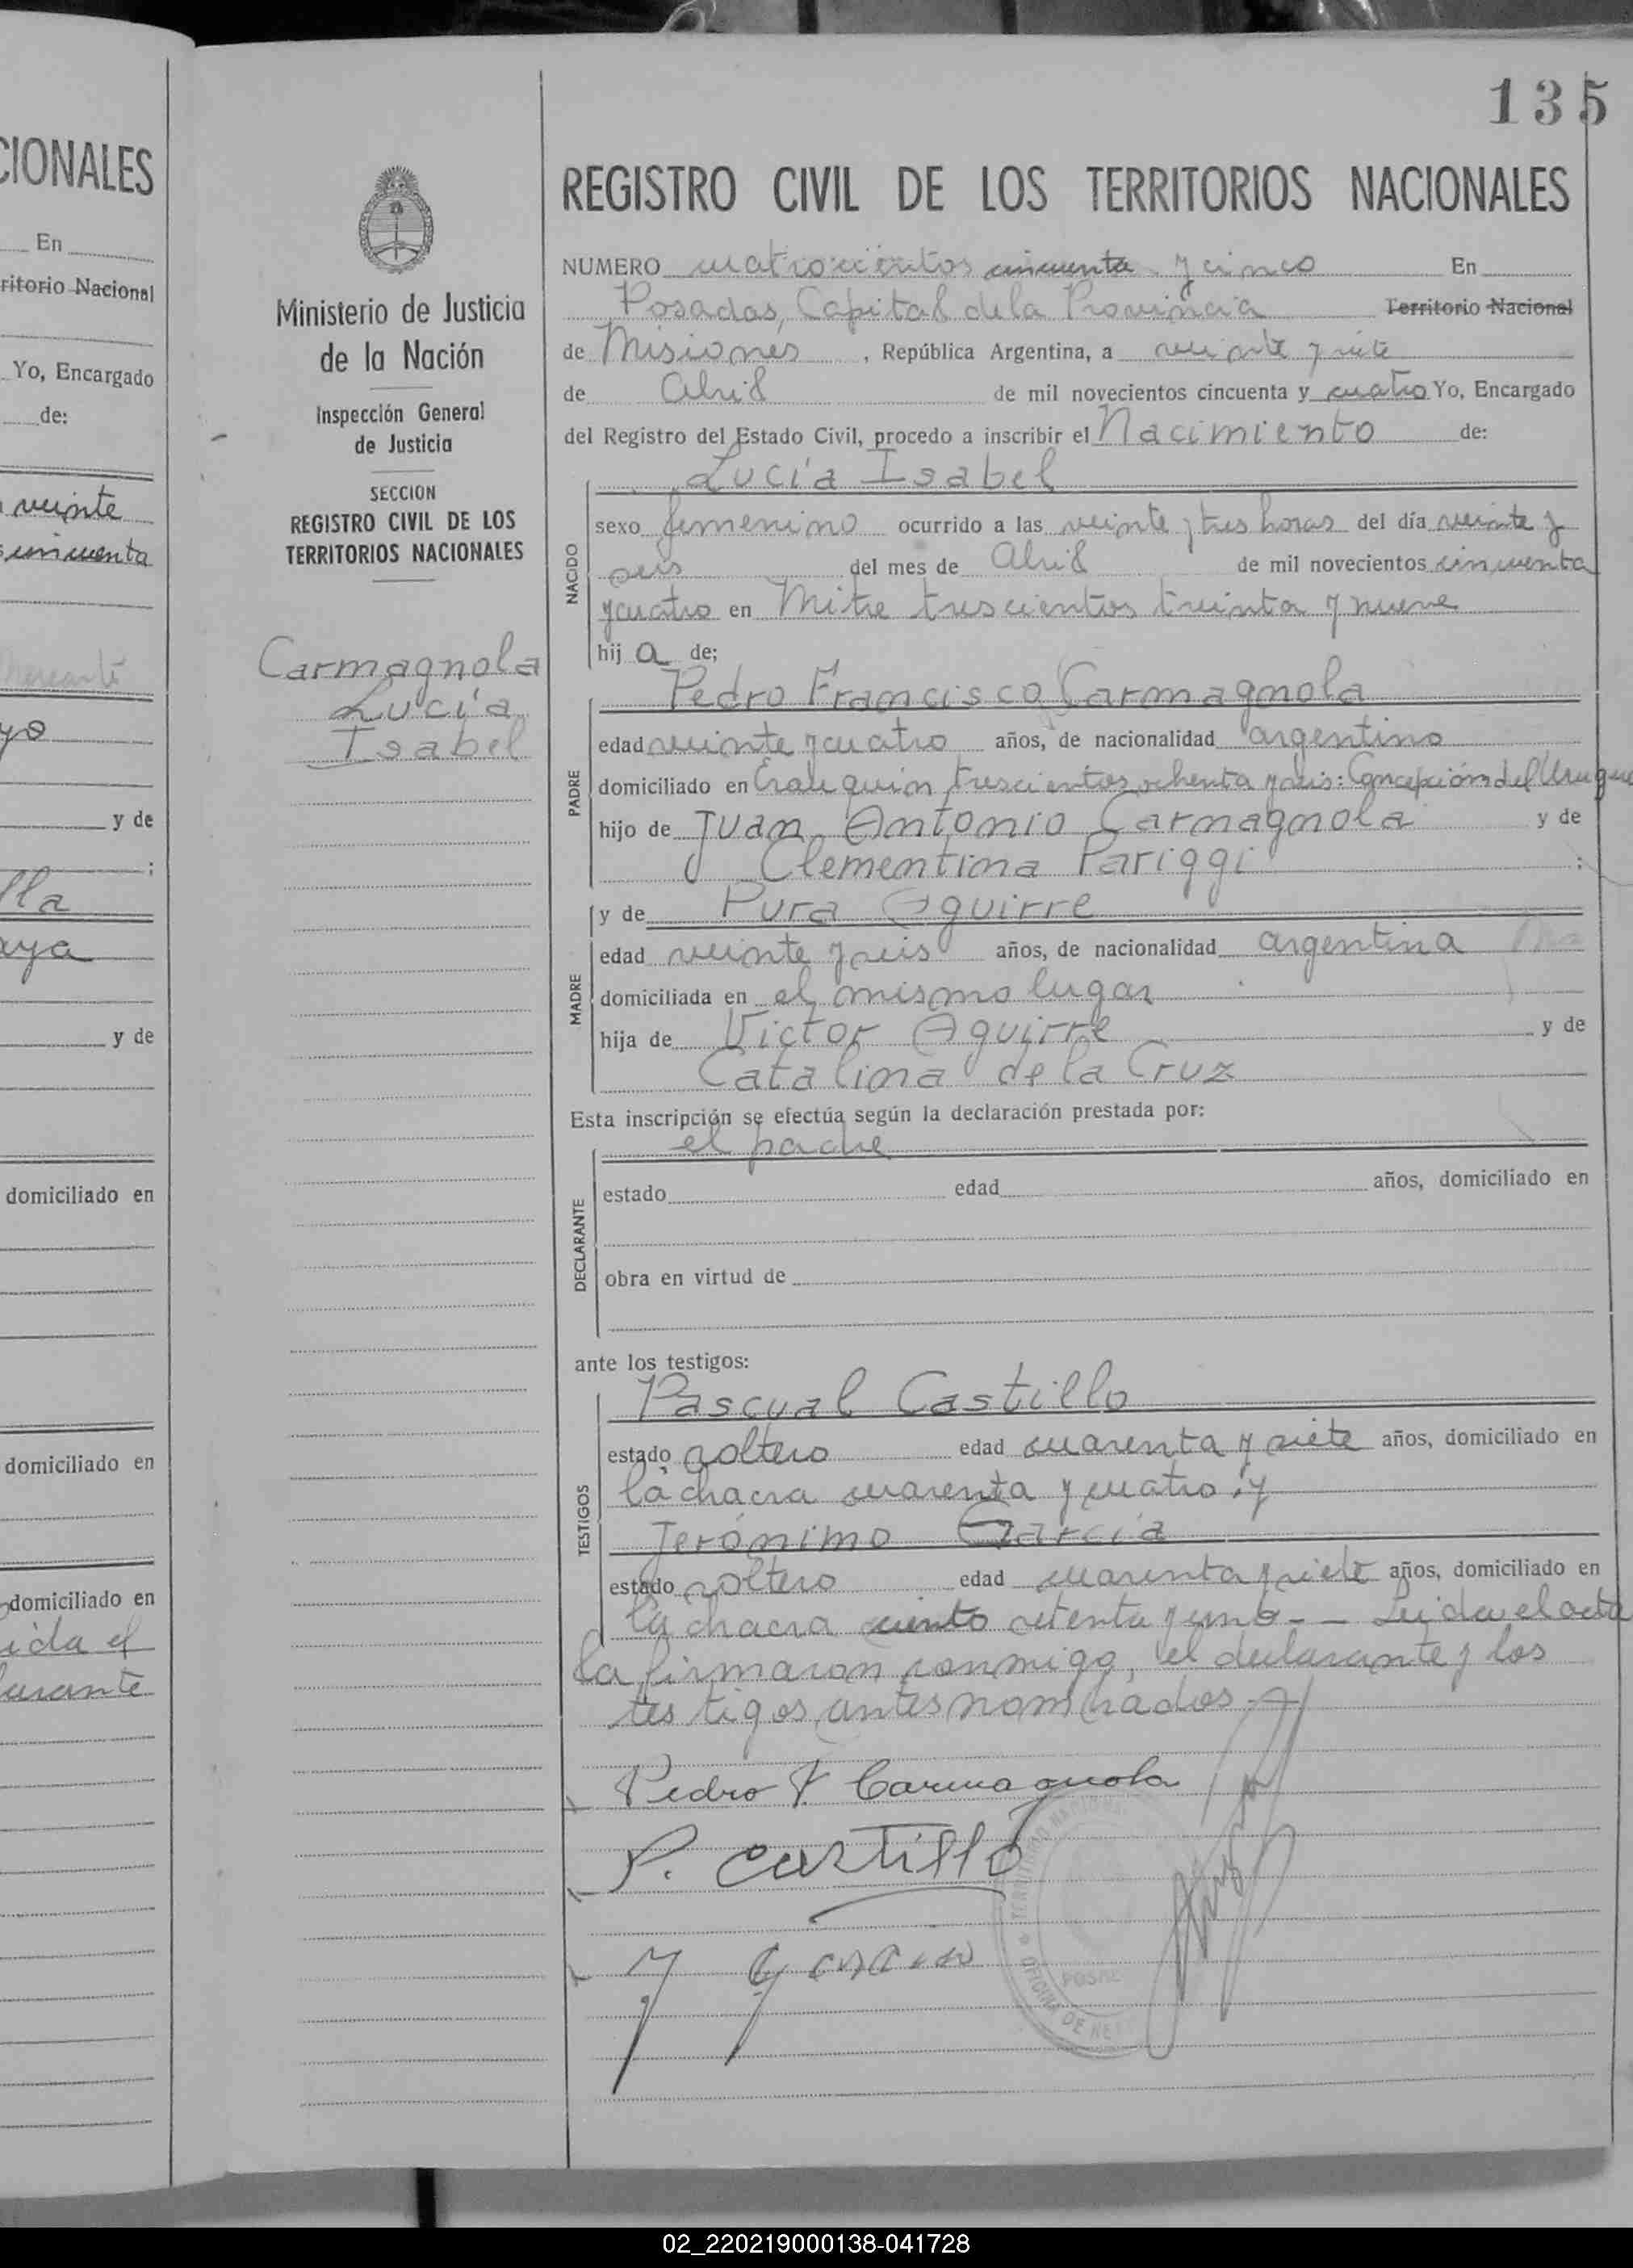 135
CIONALES
En
ritorio Nacional
Yo, Encargado
de:
veinte
cincuenta
y de
lla
aya
y de
domiciliado en
domiciliado en
domiciliado en
ida el
larante
Ministerio de Justicia
de la Nación
Inspección General
de Justicia
SECCION
REGISTRO CIVIL DE LOS
TERRITORIOS NACIONALES
Carmagnola
Lucía
Isabel
REGISTRO CIVIL DE LOS TERRITORIOS NACIONALES
NUMERO cuatrocientos cincuenta y cinco En
Posadas, Capital de la Provincia Territorio Nacional
de Misiones, República Argentina, a veinte y siete
de Abril de mil novecientos cincuenta y cuatro Yo, Encargado
del Registro del Estado Civil, procedo a inscribir el Nacimiento de:
Lucía Isabel
NACIDO
sexo femenino ocurrido a las veinte y tres horas del día veinte y
seis del mes de Abril de mil novecientos cincuenta
y cuatro en Mitre trescientos treinta y nueve
hij a de;
Pedro Francisco Carmagnola
PADRE
edad veinte y cuatro años, de nacionalidad argentino
domiciliado en trescientos ochenta y seis: Concepción del Urugua
hijo de Juan Antonio Carmagnola y de
Clementina Pariggi :
y de Pura Aguirre
MADRE
edad veinte y seis años, de nacionalidad argentina
domiciliada en el mismo lugar
hija de Victor Aguirre y de
Catalina de la Cruz
Esta inscripción se efectúa según la declaración prestada por:
el padre
DECLARANTE
estado edad años, domiciliado en
obra en virtud de
ante los testigos:
Pascual Castillo
TESTIGOS
estado soltero edad cuarenta y siete años, domiciliado en
la chacra cuarenta y cuatro; y
Jerónimo García
estado soltero edad cuarenta y siete años, domiciliado en
la chacra ciento setenta y uno - - Leida el acta
la firmaron conmigo, el declarante y los
testigos antes nombrados.-
Pedro F Carmagnola
P. Castillo
J Garcia
OFICINA DE
02_220219000138-041728